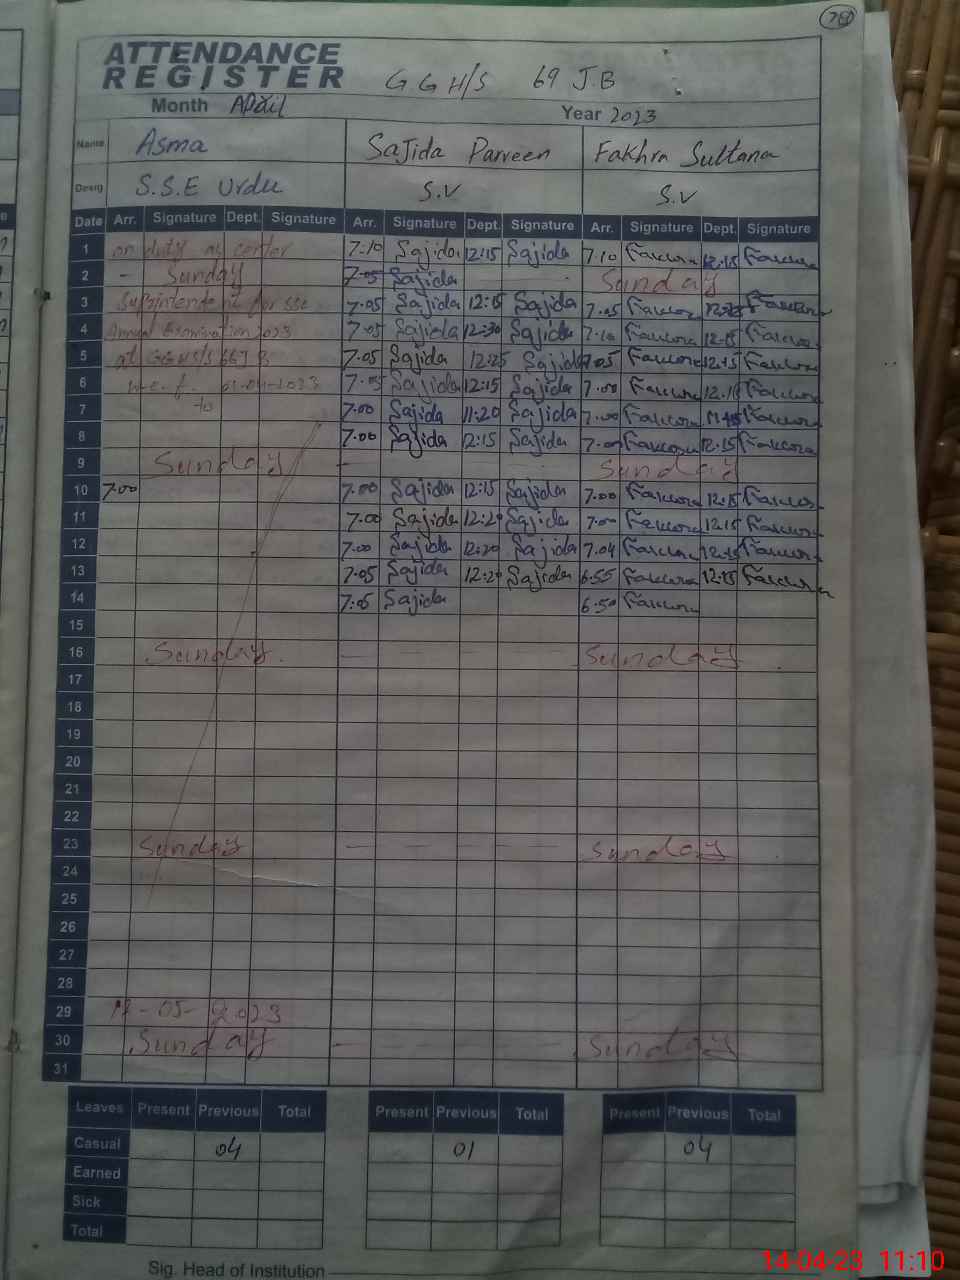 780
ATTENDANCE
REGISTER G G H/S 69 J.B
Month April Year 2023
Name Asma Sajida Parveen Fakhra Sultana
Desig S.S.E Urdu S.V S.V
Date Arr. Signature Dept. Signature Arr. Signature Dept. Signature Arr. Signature Dept. Signature
1 on duty as center 7:10 Sajida 12:15 Sajida 7.10 Fakhra 12.15 Fakhra
2 - Sunday 7.05 Sajida Sunday
3 Suprintendent for SSC 7.05 Sajida 12:15 Sajida 7.05 Fakhra Fakhra
4 Annual Examination 2023 7.05 Sajida 12:30 Sajida 7.10 Fakhra 12.15 Fakhra
5 at GGHS/S 66 J B 7.05 Sajida 12:25 Sajida 7.05 Fakhra 12.15 Fakhra
6 w.e.f. 01-04-2023 7.05 Sajida 12:15 Sajida 7.00 Fakhra 12.10 Fakhra
7 to 7.00 Sajida 11:20 Sajida 7.00 Fakhra Fakhra
8 7.00 Sajida 12:15 Sajida 7.00 Fakhra 12.15 Fakhra
9 Sunday Sunday
10 7.00 7.00 Sajida 12:15 Sajida 7.00 Fakhra 12.15 Fakhra
11 7.00 Sajida 12:20 Sajida 7.00 Fakhra 12.15 Fakhra
12 7.00 Sajida 12:20 Sajida 7.04 Fakhra Fakhra
13 7.05 Sajida 12:20 Sajida 6.55 Fakhra 12:15 Fakhra
14 7:05 Sajida 6.50 Fakhra
15
16 Sunday Sunday
17
18
19
20
21
22
23 Sunday Sunday
24
25
26
27
28
29 -05-2023
30 Sunday Sunday
31
Leaves Present Previous Total Present Previous Total Present Previous Total
Casual 04 01 04
Earned
Sick
Total
Sig. Head of Institution
14-04-23 11:10